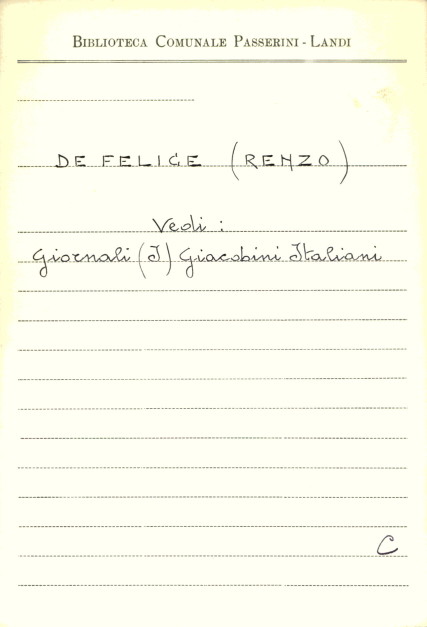 BIBLIOTECA COMUNALE PASSERINI - LANDI
DE FELICE (RENZO)
Vedi :
Giornali (I) Giacobini Italiani
C